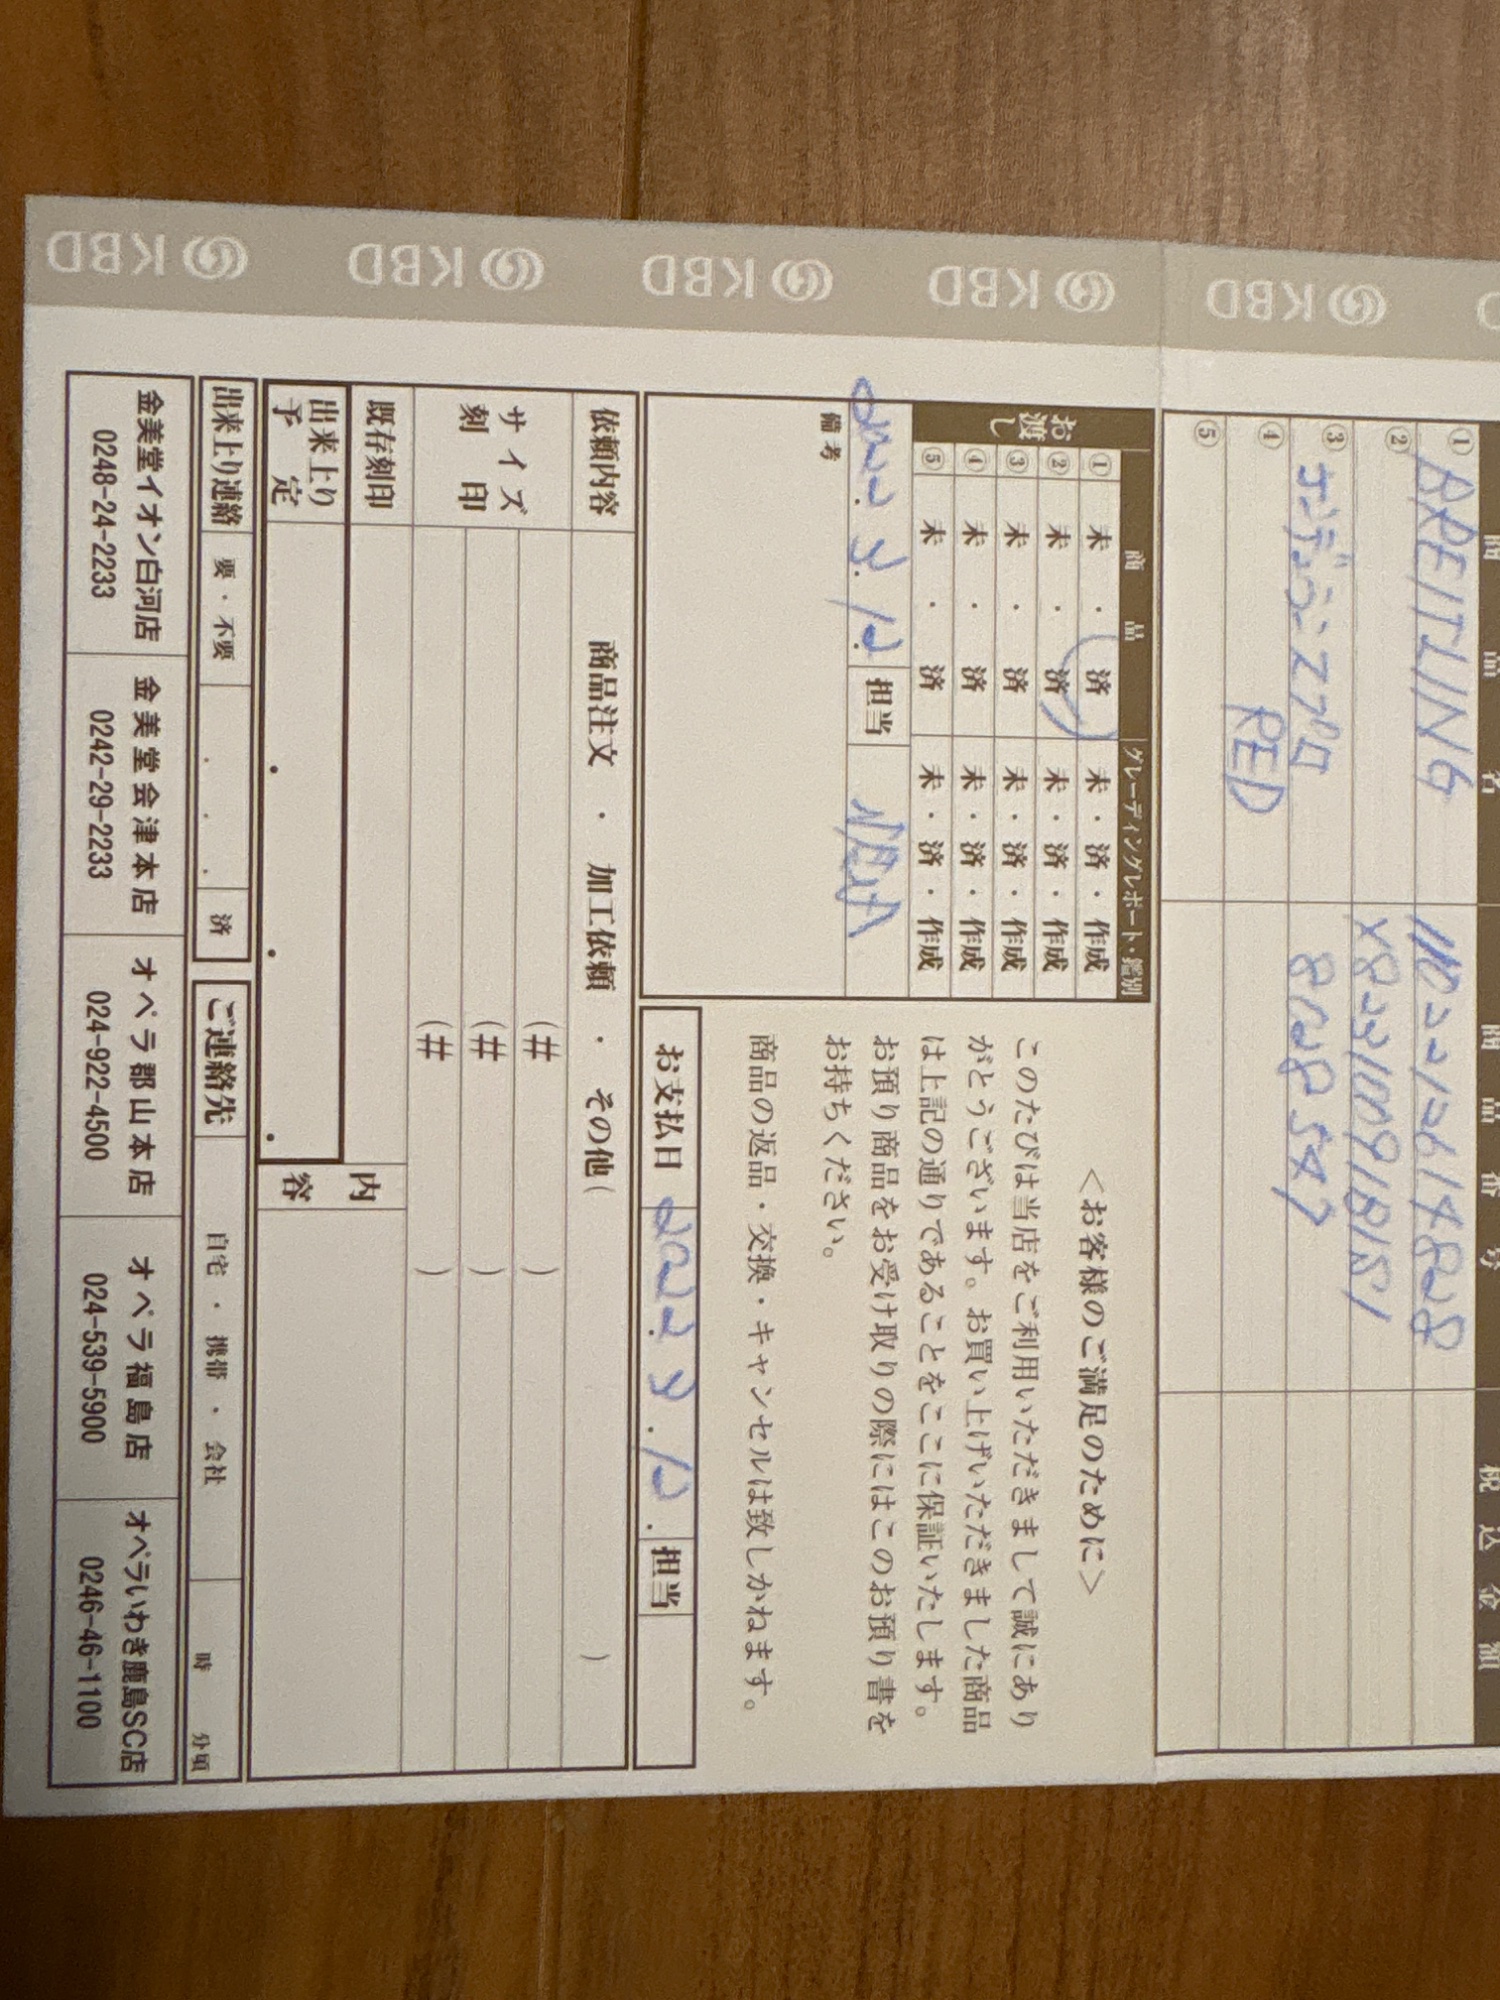 KBD KBD KBD KBD KBD
商品名 商品番号 税込金額
① BREITLING
② X823109181S1
③ エンデュランスプロ 8128547
④ RED
⑤
お渡し 商品 グレーディングレポート・鑑別
① 未・済 未・済・作成
② 未・済 未・済・作成
③ 未・済 未・済・作成
④ 未・済 未・済・作成
⑤ 未・済 未・済・作成
担当
備考
<お客様のご満足のために>
このたびは当店をご利用いただきまして誠にあり
がとうございます。お買い上げいただきました商品
は上記の通りであることをここに保証いたします。
お預り商品をお受け取りの際にはこのお預り書を
お持ちください。
商品の返品・交換・キャンセルは致しかねます。
お支払日 担当
依頼内容 商品注文 ・ 加工依頼 ・ その他( )
サイズ刻印 (# )
(# )
(# )
既存刻印 内容
出来上り予定 ・ ・ ・
出来上り連絡 要・不要 . . . 済
ご連絡先 自宅・携帯・会社 時 分頃
金美堂イオン白河店 金美堂会津本店 オペラ郡山本店 オペラ福島店 オペラいわき鹿島SC店
0248-24-2233 0242-29-2233 024-922-4500 024-539-5900 0246-46-1100